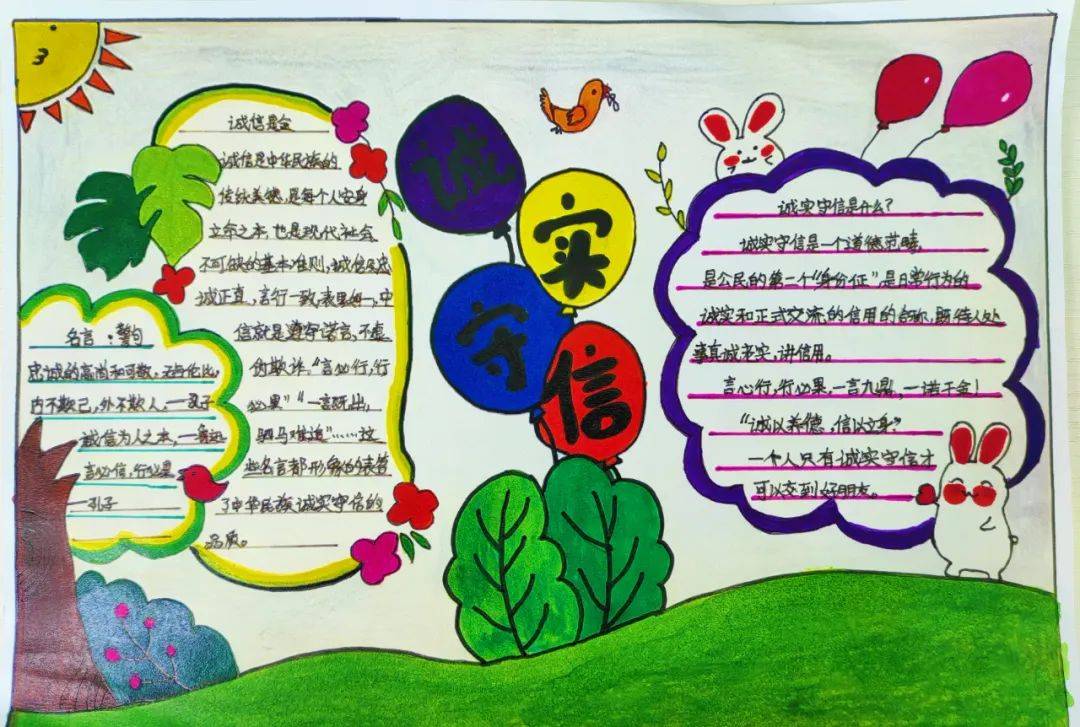 诚
实
守
信
诚信是金
诚信是中华民族的
传统美德,是每个人安身
立命之本,也是现代社会
不可缺的基本准则,诚信
诚正直,言行一致,表里如一,中
信就是遵守诺言,不虚
伪欺诈。“言必行,行
必果”“一言既出,
驷马难追”……这
些名言都形象的表答
了中华民族诚实守信的
品质。
名言:警句
忠诚的高尚和可敬,无与伦比。
内不欺己,外不欺人,一孔子
诚信为人之本,一鲁迅
言必信,行必果
一孔子
诚实守信是什么?
诚实守信是一个道德范畴,
是公民的第二个“身份证”,是日常行为的
诚实和正式交流的信用的合称,既待人处
事真诚老实,讲信用。
言必行,行必果,一言九鼎,一诺千金!
“诚以养德,信以立身”
一个人只有诚实守信才
可以交到好朋友。